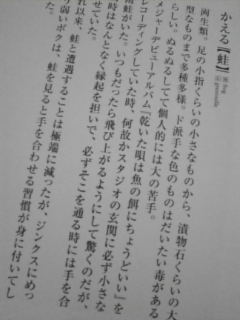 かえる【蛙】 英 frog 仏 grenouille
両生類。足の小指くらいの小さなものから、漬物石くらいの大
型なものまで多種多様。ド派手な色のものはだいたい毒がある
らしい。ぬるぬるしてて個人的には大の苦手。
メジャーデビューアルバム『乾いた唄は魚の餌にちょうどいい』を
レコーディングしていた時、何故かスタジオの玄関に必ず小さな
雨蛙がいた。いつもだったら飛び上がるようにして驚くのだが、
時はなんとなく縁起を担いで、必ずそこを通る時には手を合
せていた。
れ以来、蛙と遭遇することは極端に減ったが、ジンクスにめっ
弱いボクは、蛙を見ると手を合わせる習慣が身に付いてし